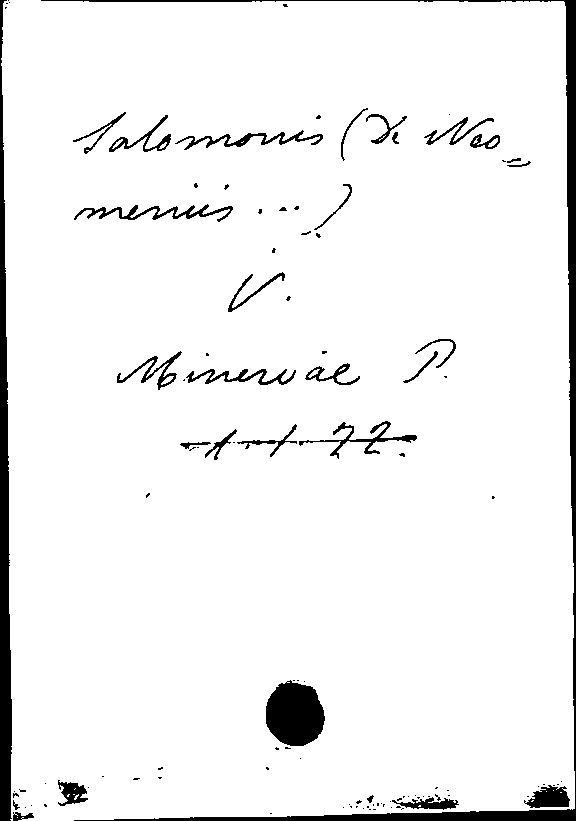 Salomonis (De Neo=
meniis ...)
V.
Minervae P.
1. 1. 22.